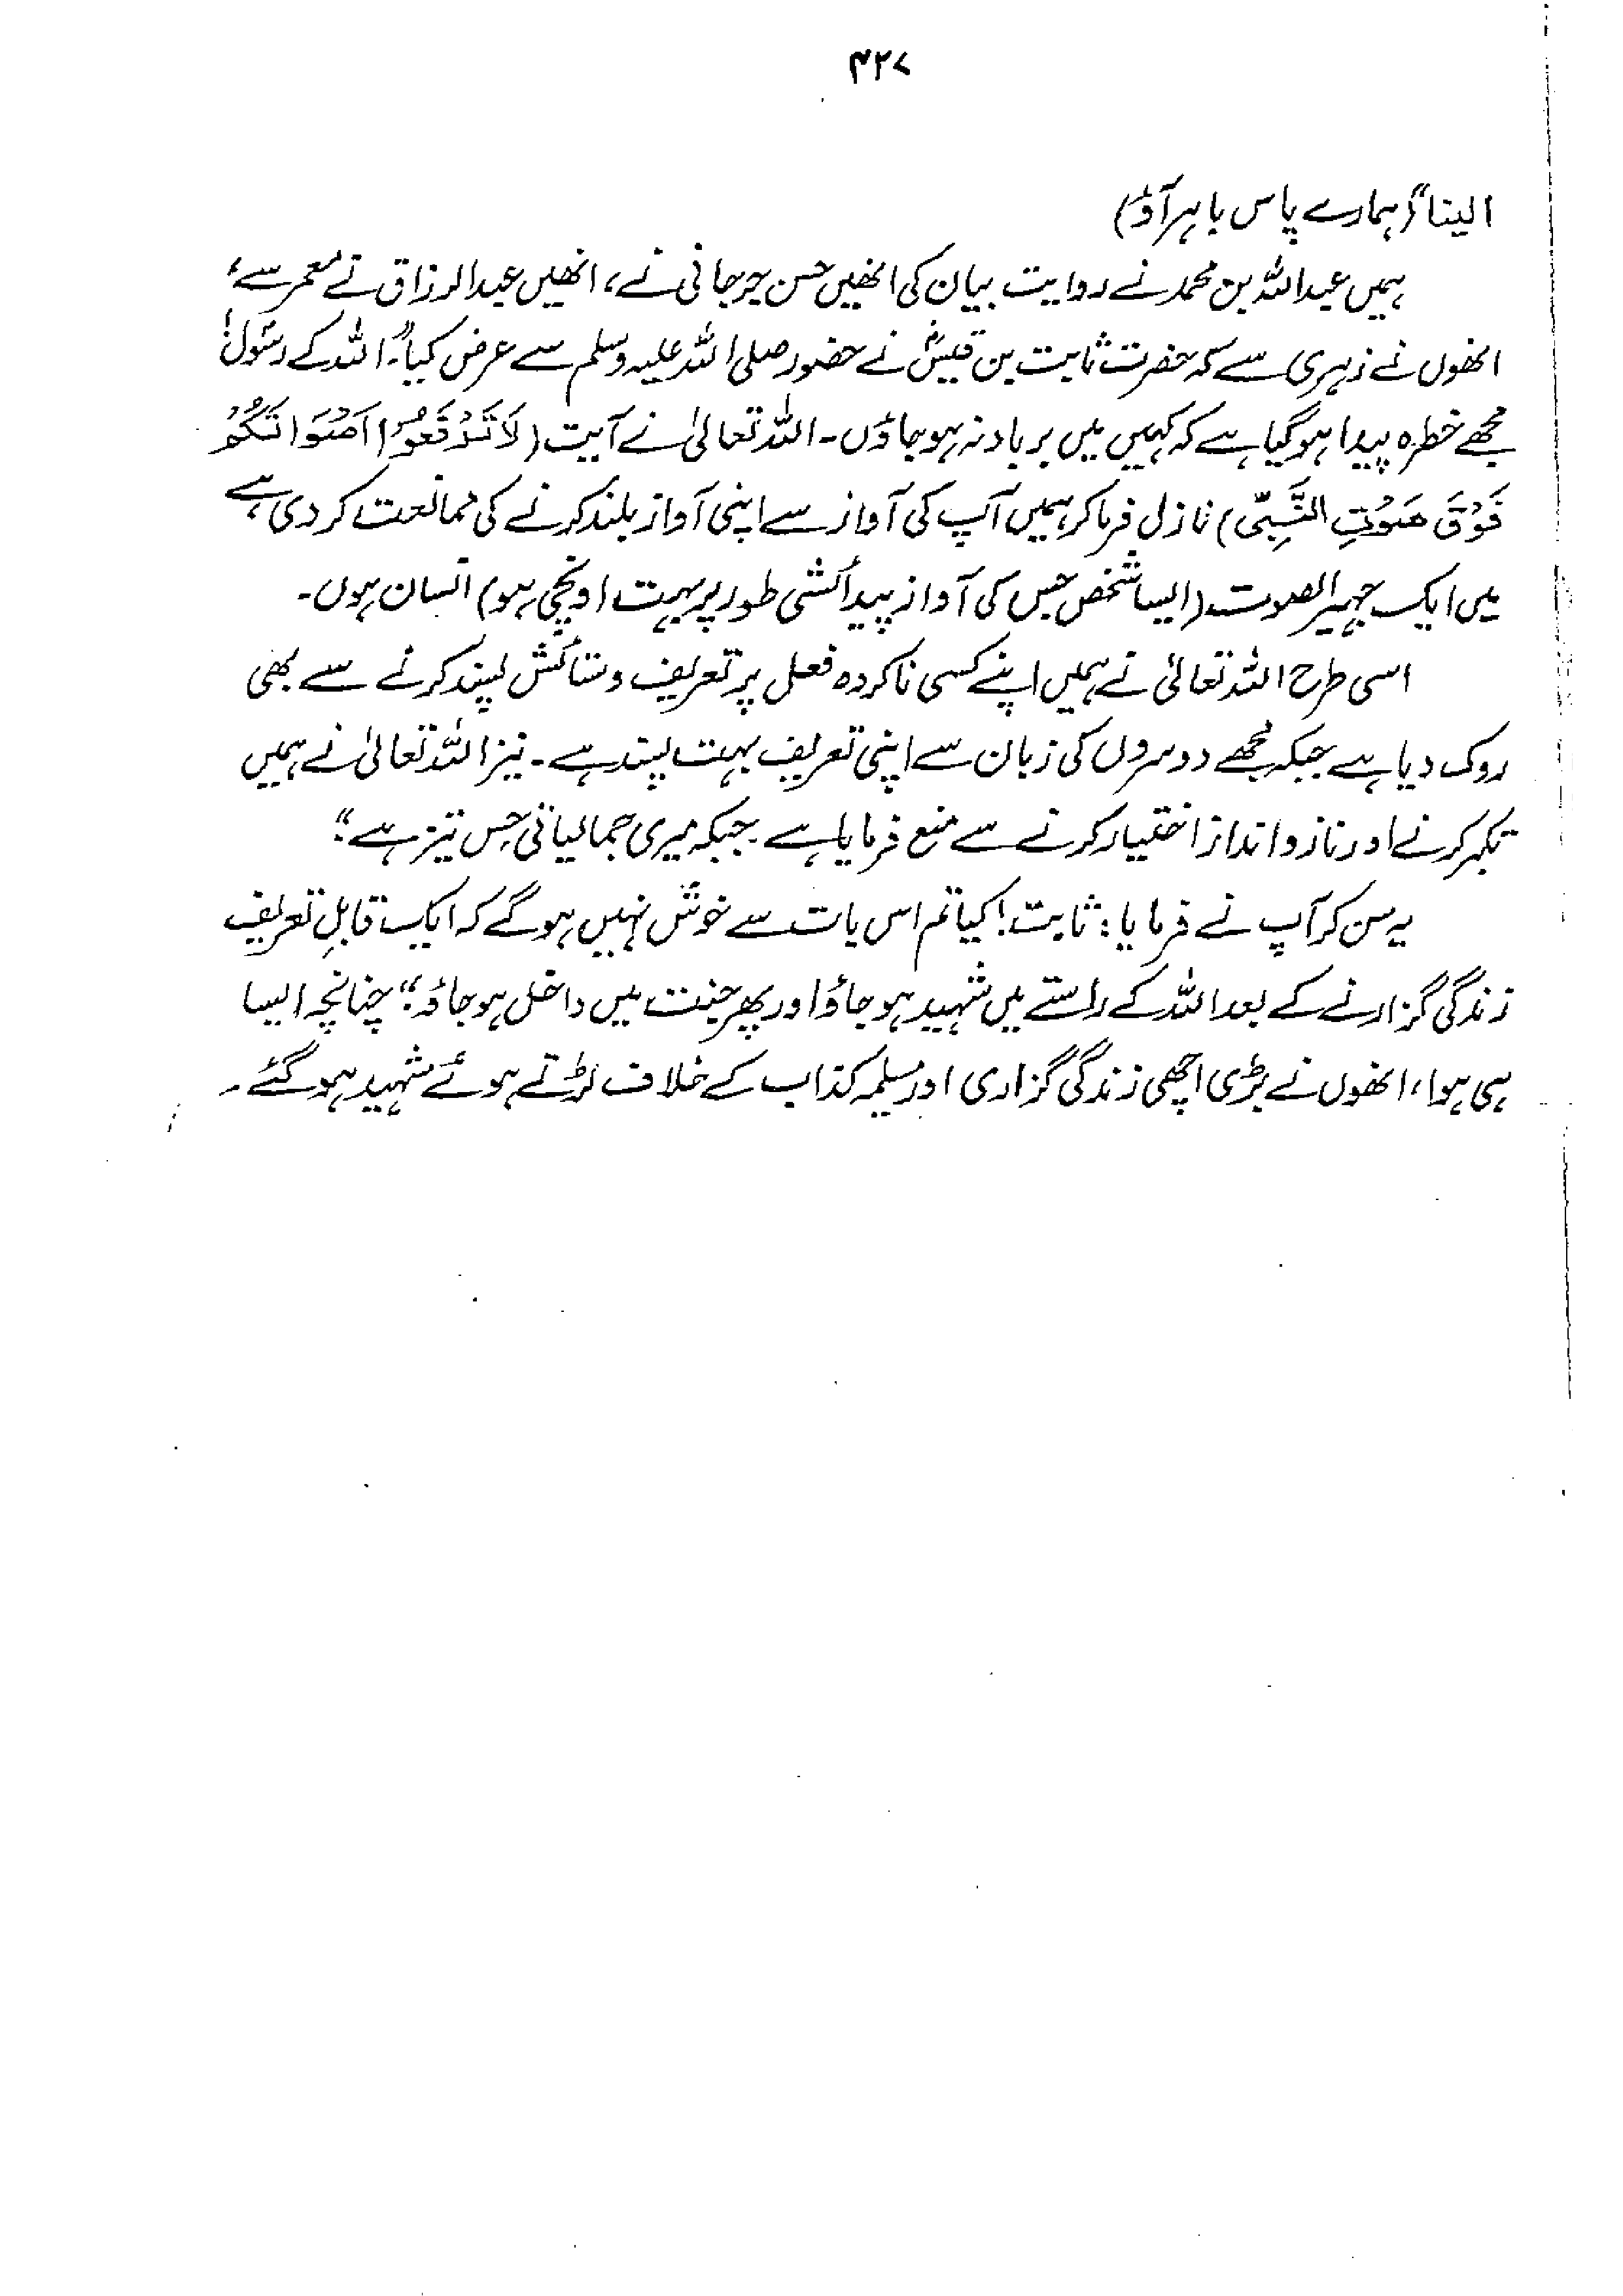 ۴۲۷
الینا" (ہمارے پاس باہر آؤ)
ہمیں عبداللہ بن محمد نے روایت بیان کی انھیں حسن جرجانی نے، انھیں عبدالرزاق نے معمر سے،
انھوں نے زہری سے کہ حضرت ثابت بن قیسؓ نے حضور صلی اللہ علیہ وسلم سے عرض کیا"۔ اللہ کے رسول!
مجھے خطرہ پیدا ہو گیا ہے کہ کہیں میں برباد نہ ہو جاؤں۔ اللہ تعالیٰ نے آیت (لَا تَرْفَعُوْا اَصْوَاتَكُمْ
فَوْقَ صَوْتِ النَّبِیِّ) نازل فرما کر ہمیں آپ کی آواز سے اپنی آواز بلند کرنے کی ممانعت کر دی ہے،
میں ایک جہیر الصوت (ایسا شخص جس کی آواز پیدائشی طور پر بہت اونچی ہو) انسان ہوں۔
اسی طرح اللہ تعالیٰ نے ہمیں اپنے کسی ناکردہ فعل پر تعریف و ستائش پسند کرنے سے بھی
روک دیا ہے جبکہ مجھے دوسروں کی زبان سے اپنی تعریف بہت پسند ہے۔ نیز اللہ تعالیٰ نے ہمیں
تکبر کرنے اور ناز و انداز اختیار کرنے سے منع فرمایا ہے جبکہ میری جمالیاتی حِس تیز ہے"؛
یہ سن کر آپ نے فرمایا: ثابت! کیا تم اس بات سے خوش نہیں ہو گے کہ ایک قابلِ تعریف
زندگی گزارنے کے بعد اللہ کے راستے میں شہید ہو جاؤ اور پھر جنت میں داخل ہو جاؤ؛" چنانچہ ایسا
ہی ہوا، انھوں نے بڑی اچھی زندگی گزاری اور مسیلمہ کذاب کے خلاف لڑتے ہوئے شہید ہو گئے۔